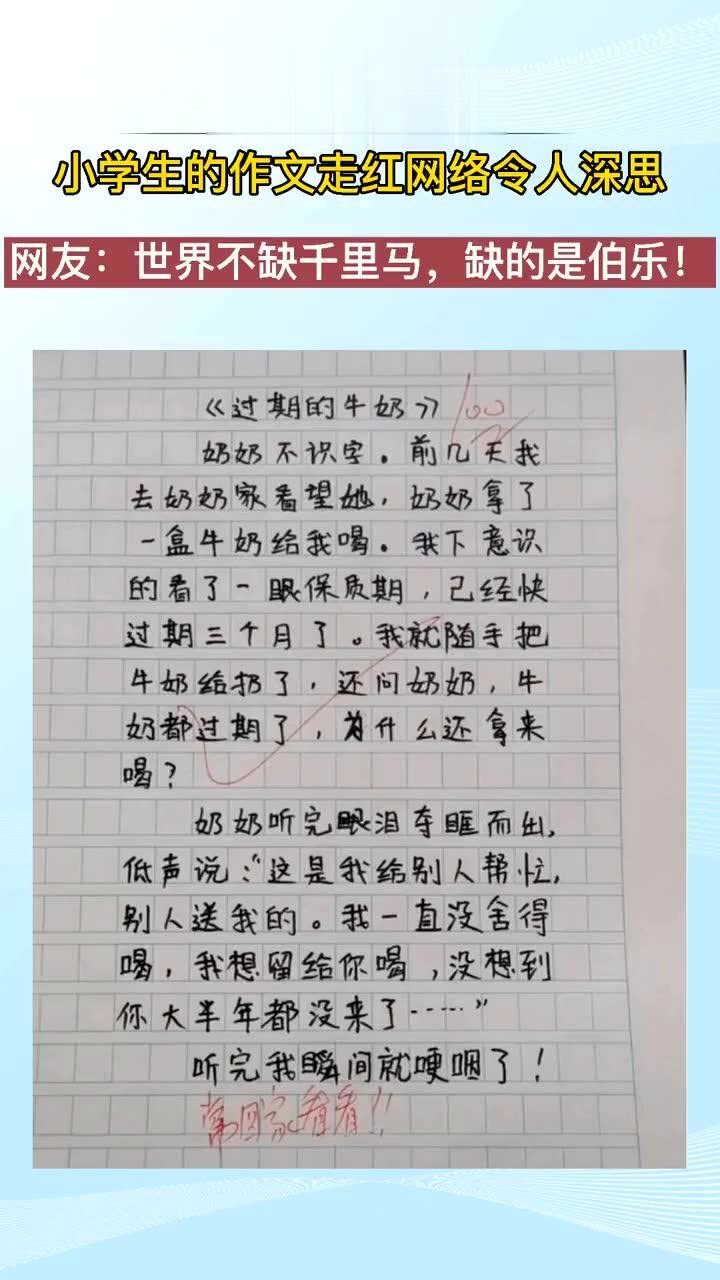 小学生的作文走红网络令人深思
网友：世界不缺千里马，缺的是伯乐！
《过期的牛奶》 100
奶奶不识字。前几天我
去奶奶家看望她，奶奶拿了
一盒牛奶给我喝。我下意识
的看了一眼保质期，已经快
过期三个月了。我就随手把
牛奶给扔了，还问奶奶，牛
奶都过期了，为什么还拿来
喝？
奶奶听完眼泪夺眶而出，
低声说：“这是我给别人帮忙，
别人送我的。我一直没舍得
喝，我想留给你喝，没想到
你大半年都没来了……”
听完我瞬间就哽咽了！
常回家看看！！